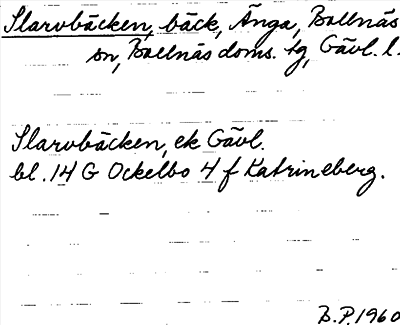 Slarvbäcken, bäck, Änga, Bollnäs
sn, Bollnäs doms. tg, Gävl. l.
Slarvbäcken, ek Gävl.
bl. 14 G Ockelbo 4 f Katrineberg.
B.P. 1960